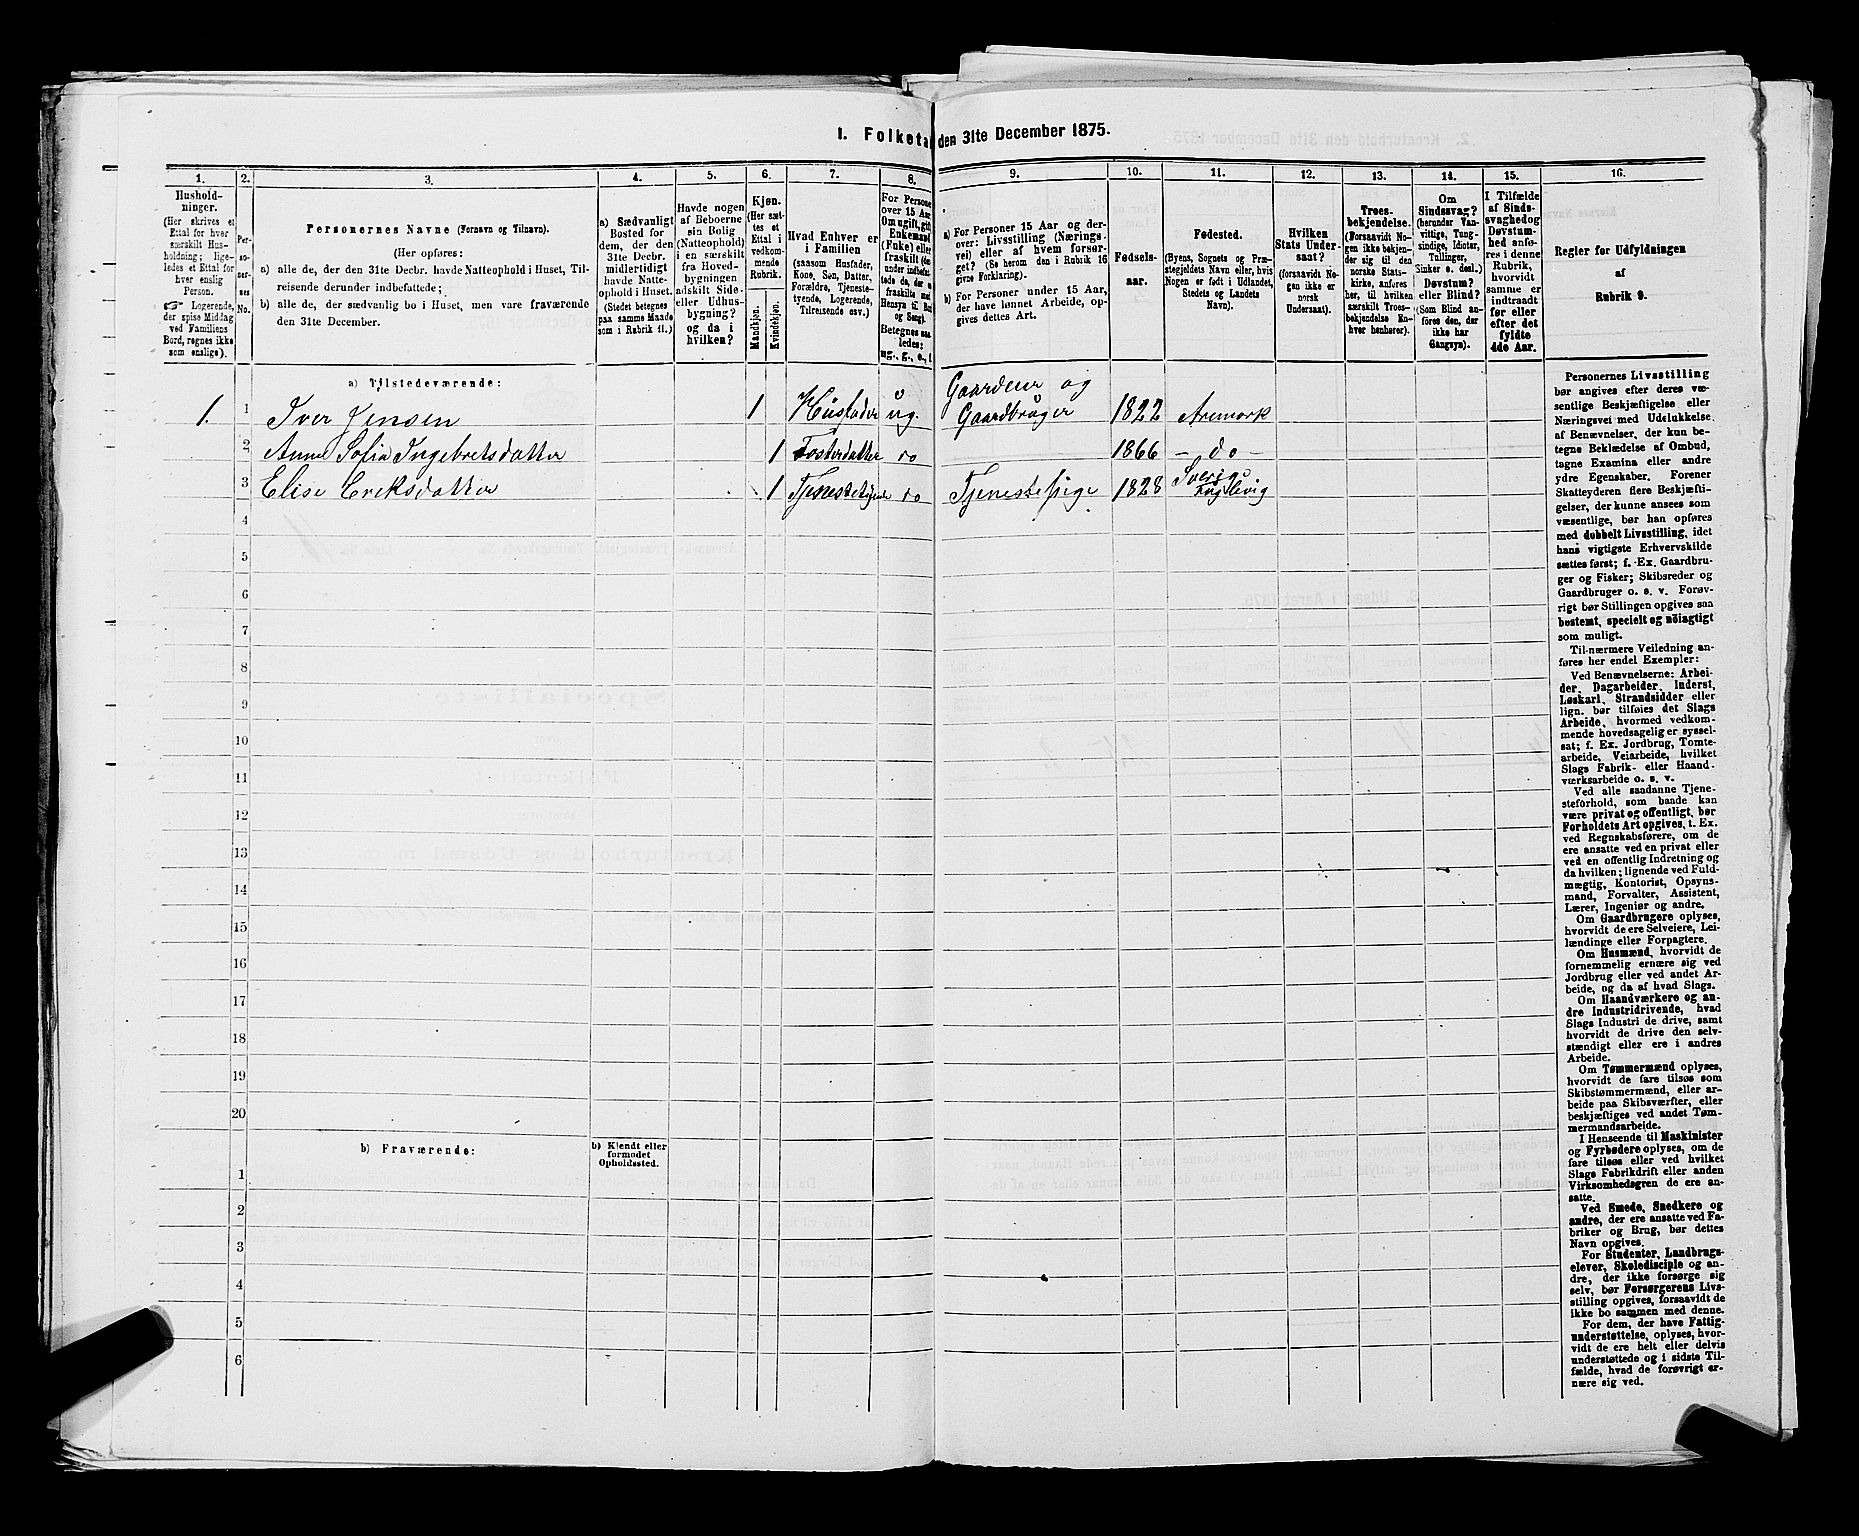 1. Folketal den 31te December 1875.
1.
Hushold-
ninger.
(Her skrives et
Ettal for hver
særskilt Hus-
holdning; lige-
ledes et Ettal for
hver enslig
Person.
☞ Logerende,
der spise Middag
ved Familiens
Bord, regnes ikke
som enslige).
2.
Per-
so-
ner-
nes
No.
3.
Personernes Navne (Fornavn og Tilnavn).
(Her opføres:
a) alle de, der den 31te Decbr. havde Natteophold i Huset, Til-
reisende derunder indbefattede;
b) alle de, der sædvanlig bo i Huset, men vare fraværende
den 31te December.
4.
a) Sædvanligt
Bosted for
dem, der den
31te Decbr.
midlertidigt
havde Natte-
ophold i Huset.
(Stedet betegnes
paa samme Maade
som i Rubrik 11.)
5.
Havde nogen
af Beboerne
sin Bolig
(Natteophold)
i en særskilt
fra Hoved-
bygningen
adskilt Side-
eller Udhus-
bygning?
og da i
hvilken?
6.
Kjøn.
(Her sæt-
tes et
Ettal i
vedkom-
mende
Rubrik.
Mandkjøn.
Kvindekjøn.
7.
Hvad Enhver er
i Familien
(saasom Husfader,
Kone, Søn, Datter,
Forældre, Tjeneste-
tyende, Logerende,
Tilreisende osv.)
8.
For Persone
over 15 Aar
Om ugift, gift
Enkemand
(Enke) eller
fraskilt
Betegnes saa-
ledes:
ug., g., e., f.
9.
a) For Personer 15 Aar og der-
over: Livsstilling (Nærings-
vei) eller af hvem forsør-
get? (Se herom den i Rubrik 16
givne Forklaring).
b) For Personer under 15 Aar,
der have lønnet Arbeide, op-
gives dettes Art.
10.
Fødsels-
aar.
11.
Fødested.
(Byens, Sognets og Præ-
stegjeldets Navn eller, hvis
Nogen er født i Udlandet,
Stedets og Landets
Navn).
12.
Hvilken
Stats Under-
saat?
(forsaavidt No-
gen ikke er
norsk
Undersaat).
13.
Troes-
bekjendelse.
(Forsaavidt No-
gen ikke bekjen-
der sig til den
norske Stats-
kirke, anføres
her, til hvilken
særskilt Troes-
bekjendelse En-
hver henhører).
14.
Om
Sindssvag?
(herunder Van-
vittige, Tung-
sindige, Idioter,
Tullinger,
Sinker o. desl.)
Døvstum?
eller Blind?
(Som Blind an-
føres den, der
ikke har
Gangsyn).
15.
I Tilfælde
af Sinds-
svaghed og
Døvstum-
hed anfø-
res i denne
Rubrik,
hvorvidt
samme er
indtraadt
før eller
efter det
fyldte
4de Aar.
16.
Regler for Udfyldningen
af
Rubrik 9.
a) Tilstedeværende:
1. 1 Iver Jensen 1 Husfader ug. Gaardeier og Gaardbruger 1822 Aremark
2 Anne Sofia Ingebretsdatter 1 Fosterdatter do 1866 - do -
3 Elise Eriksdatter 1 Tjenestetyende do Tjenestepige 1828 Sverige
4
5
6
7
8
9
10
11
12
13
14
15
16
17
18
19
20
b) Fraværende:
b) Kjendt eller
formodet
Opholdssted.
1
2
3
4
5
6
Personernes Livsstilling
bør angives efter deres væ-
sentlige Beskjæftigelse eller
Næringsvei med Udelukkelse
af Benævnelser, der kun be-
tegne Beklædelse af Ombud,
tagne Examina eller andre
ydre Egenskaber. Forener
Skatteyderen flere Beskjæfti-
gelser, der kunne ansees som
væsentlige, bør han opføres
med dobbelt Livsstilling, idet
hans vigtigste Erhvervskilde
sættes først; f. Ex. Gaardbru-
ger og Fisker; Skibsreder og
Gaardbruger o. s. v. Forøv-
rigt bør Stillingen opgives saa
bestemt, specielt og nøiagtigt
som muligt.
Til nærmere Veiledning an-
føres her endel Exempler:
Ved Benævnelserne: Arbei-
der, Dagarbeider, Inderst,
Løskarl, Strandsidder eller
lign. bør tilføies det Slags
Arbeide, hvormed vedkom-
mende hovedsagelig er syssel-
sat; f. Ex. Jordbrug, Tomte-
arbeide, Veiarbeide, hvilket
Slags Fabrik- eller Haand-
værksarbeide o. s. v.
Ved alle saadanne Tjene-
steforhold, som baade kan
være privat og offentligt, bør
Forholdets Art opgives, t. Ex.
ved Regnskabsførere, om de
ere ansatte ved en privat eller
ved en offentlig Indretning og
da hvilken; lignende ved Fuld-
mægtig, Kontorist, Opsyns-
mand, Forvalter, Assistent,
Lærer, Ingeniør og andre.
Om Gaardbrugere oplyses,
hvorvidt de ere Selveiere, Lei-
lændinge eller Forpagtere.
Om Husmænd, hvorvidt de
fornemmelig ernære sig ved
Jordbrug eller ved andet Ar-
beide, og da af hvad Slags.
Om Haandværkere og an-
dre Industridrivende, hvad
Slags Industri de drive, samt
hvorvidt de drive den selv-
stændigt eller ere i andres
Arbeide.
Om Tømmermænd oplyses,
hvorvidt de fare tilsøs som
Skibstømmermænd, eller ar-
beide paa Skibsværfter, eller
beskjæftiges ved andet Tøm-
mermandsarbeide.
I Henseende til Maskinister
og Fyrbødere oplyses, om de
fare tilsøs eller ved hvilket
Slags Fabrikdrift eller anden
Virksomhedsgren de ere an-
satte.
Ved Smede, Snedkere og
andre, der ere ansatte ved Fa-
briker og Brug, bør dettes
Navn opgives.
For Studenter, Landbrugs-
elever, Skoledisciple og an-
dre, der ikke forsørge sig
selv, bør Forsørgerens Livs-
stilling opgives, forsaavidt de
ikke bo sammen med denne.
For dem, der have Fattig-
understøttelse, oplyses, hvor-
vidt de ere helt eller delvis
understøttede og i sidste Til-
fælde, hvad de forøvrigt er-
nære sig ved.